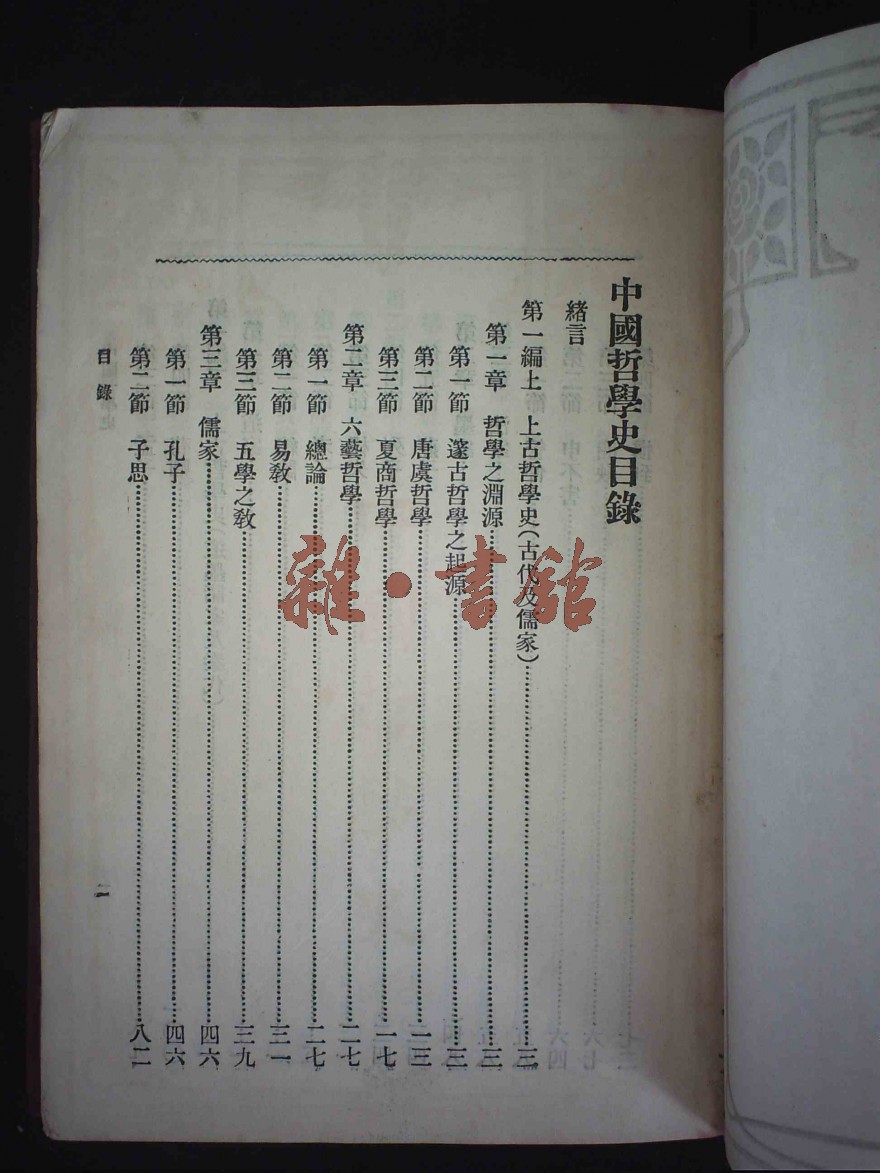 中國哲學史目錄
緒言
第一編上　上古哲學史(古代及儒家)……三
第一章　哲學之淵源……三
第一節　邃古哲學之起源……三
第二節　唐虞哲學……一三
第三節　夏商哲學……一七
第二章　六藝哲學……二七
第一節　總論……二七
第二節　易教……三一
第三節　五學之教……三九
第三章　儒家……四六
第一節　孔子……四六
第二節　子思……八二
目錄
雜·書館